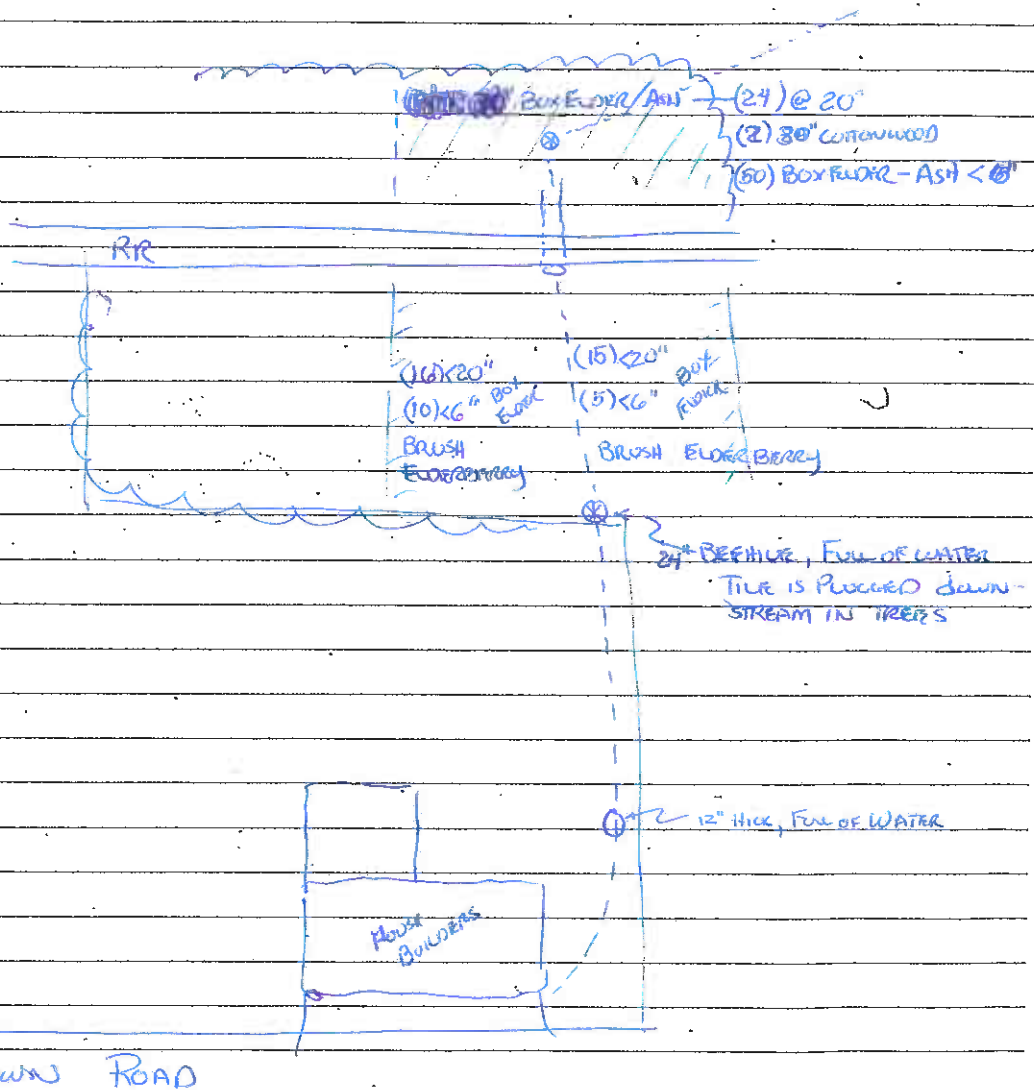 BOX ELDER/ASH (24) @ 20"
(2) 30" COTTONWOOD
(50) BOX ELDER - ASH < 6"
RR
(16)<20"
(10)<6" BOX ELDER
BRUSH
ELDERBERRY
(15)<20"
(5)<6" BOX ELDER
BRUSH ELDERBERRY
24" BEEHIVE, FULL OF WATER
TILE IS PLUGGED DOWN-
STREAM IN TREES
12" HICK, FULL OF WATER
HOUSE
BUILDERS
ROAD